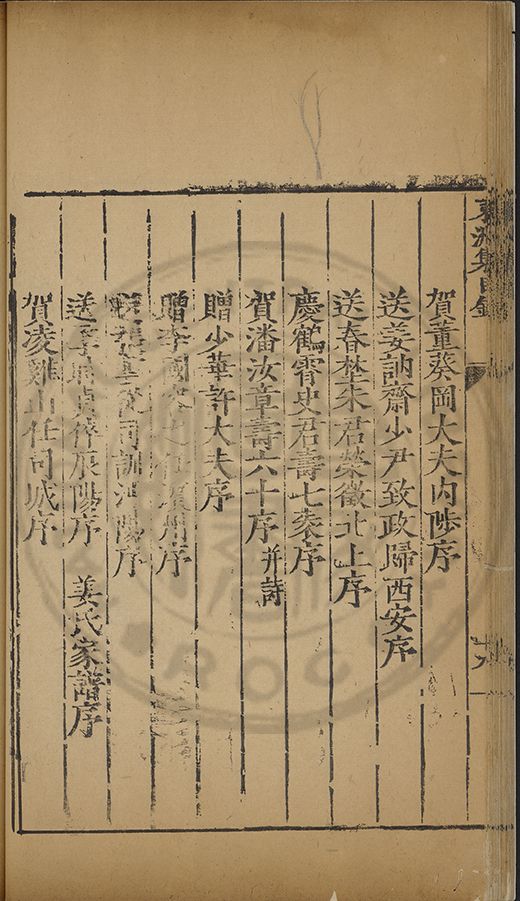 東洲集目錄
賀董葵岡大夫内陟序
送姜訥齋少尹致政歸西安序
送春埜朱君榮徵北上序
慶鶴霄史君壽七袠序
賀潘汝章壽六十序 并詩
贈少華許大夫序
贈李國 之任廣州序
司訓 陽序
送 倅辰陽序 姜氏家譜序
賀凌雞山任同城序